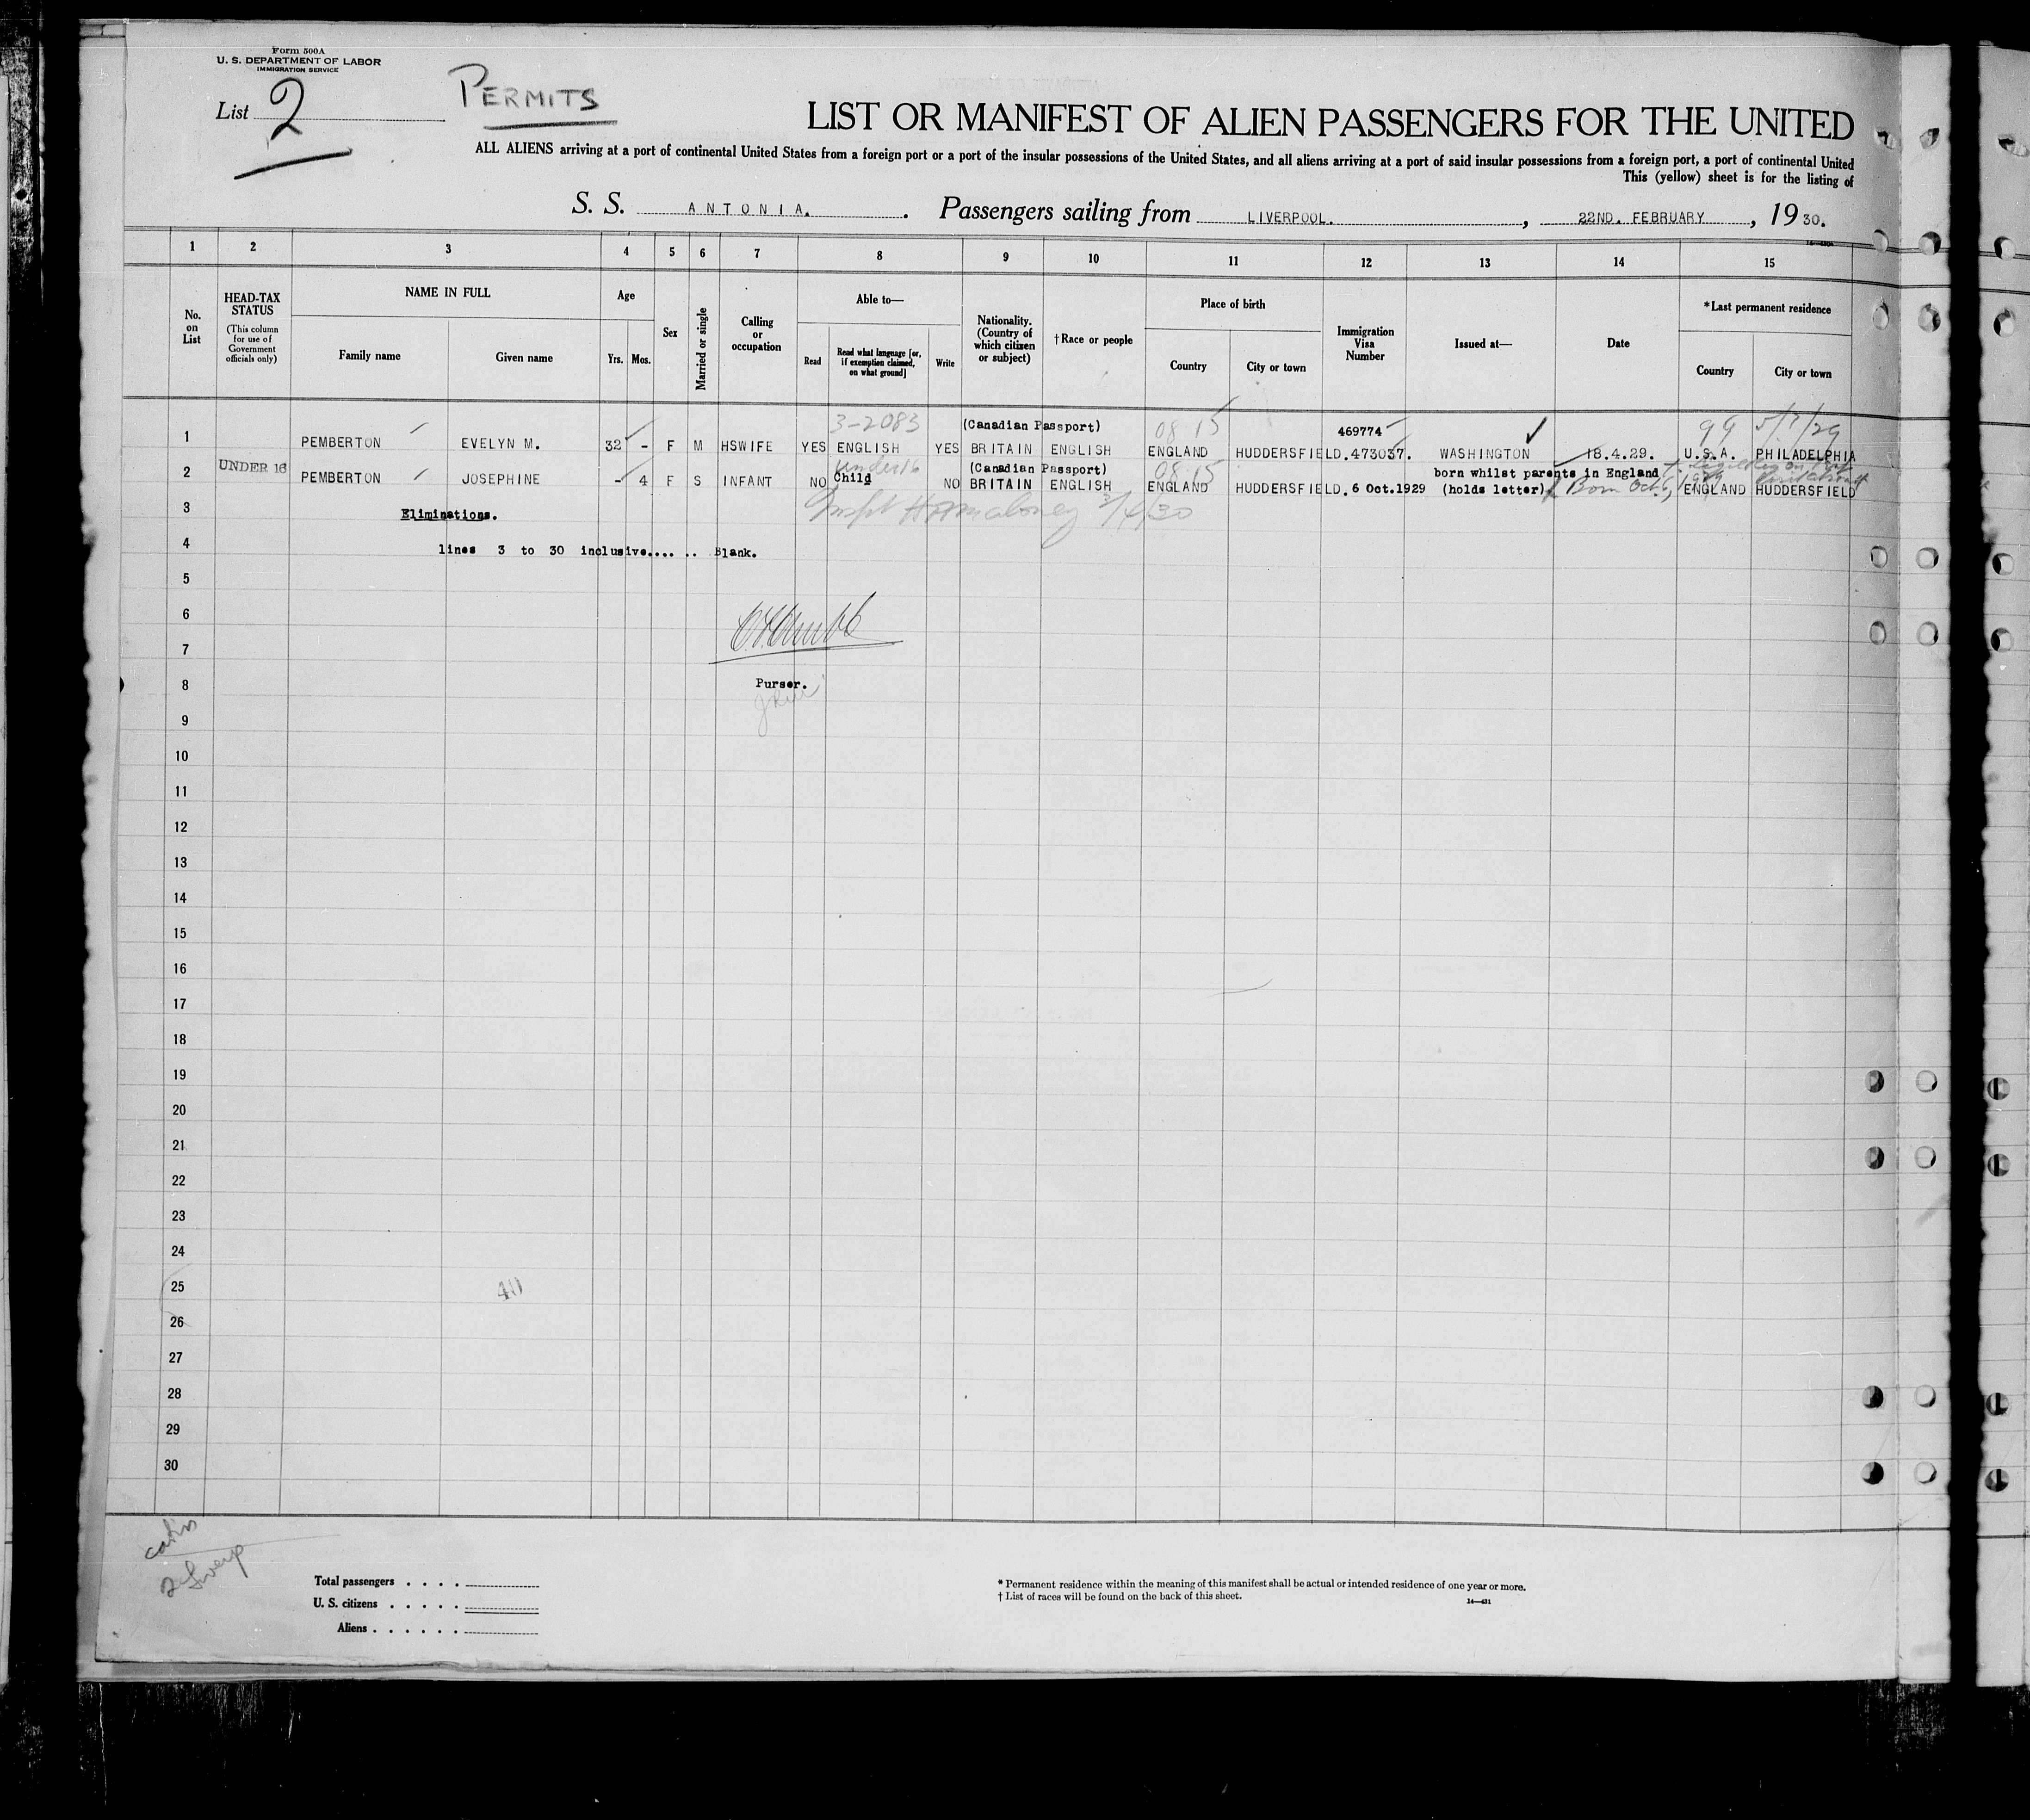 Form 500A
U. S. DEPARTMENT OF LABOR
IMMIGRATION SERVICE
List 2
PERMITS
LIST OR MANIFEST OF ALIEN PASSENGERS FOR THE UNITED
ALL ALIENS arriving at a port of continental United States from a foreign port or a port of the insular possessions of the United States, and all aliens arriving at a port of said insular possessions from a foreign port, a port of continental United
This (yellow) sheet is for the listing of
S. S. ANTONIA. Passengers sailing from LIVERPOOL. , 22ND. FEBRUARY , 19 30.
1 2 3 4 5 6 7 8 9 10 11 12 13 14 15
No. on List
HEAD-TAX STATUS
(This column for use of Government officials only)
NAME IN FULL
Family name Given name
Age
Yrs. Mos.
Sex
Married or single
Calling or occupation
Able to—
Read
Read what language [or, if exemption claimed, on what ground]
Write
Nationality. (Country of which citizen or subject)
†Race or people
Place of birth
Country City or town
Immigration Visa Number
Issued at—
Date
*Last permanent residence
Country City or town
3-2083 (Canadian Passport) 08 15 469774 99 5/1/29
1 PEMBERTON EVELYN M. 32 - F M HSWIFE YES ENGLISH YES BRITAIN ENGLISH ENGLAND HUDDERSFIELD. 473037. WASHINGTON 18.4.29. U.S.A. PHILADELPHIA
UNDER 16 under 16 (Canadian Passport) 08 15 born whilst parents in England
2 PEMBERTON JOSEPHINE - 4 F S INFANT NO Child NO BRITAIN ENGLISH ENGLAND HUDDERSFIELD. 6 Oct.1929 (holds letter) Born Oct 6, 1929 ENGLAND HUDDERSFIELD
3 Eliminations.
4 lines 3 to 30 inclusive.... .. Blank.
5
6
7
8 Purser.
9
10
11
12
13
14
15
16
17
18
19
20
21
22
23
24
25 40
26
27
28
29
30
Total passengers . . . .
U. S. citizens . . . . .
Aliens . . . . . .
* Permanent residence within the meaning of this manifest shall be actual or intended residence of one year or more.
† List of races will be found on the back of this sheet.
14—431